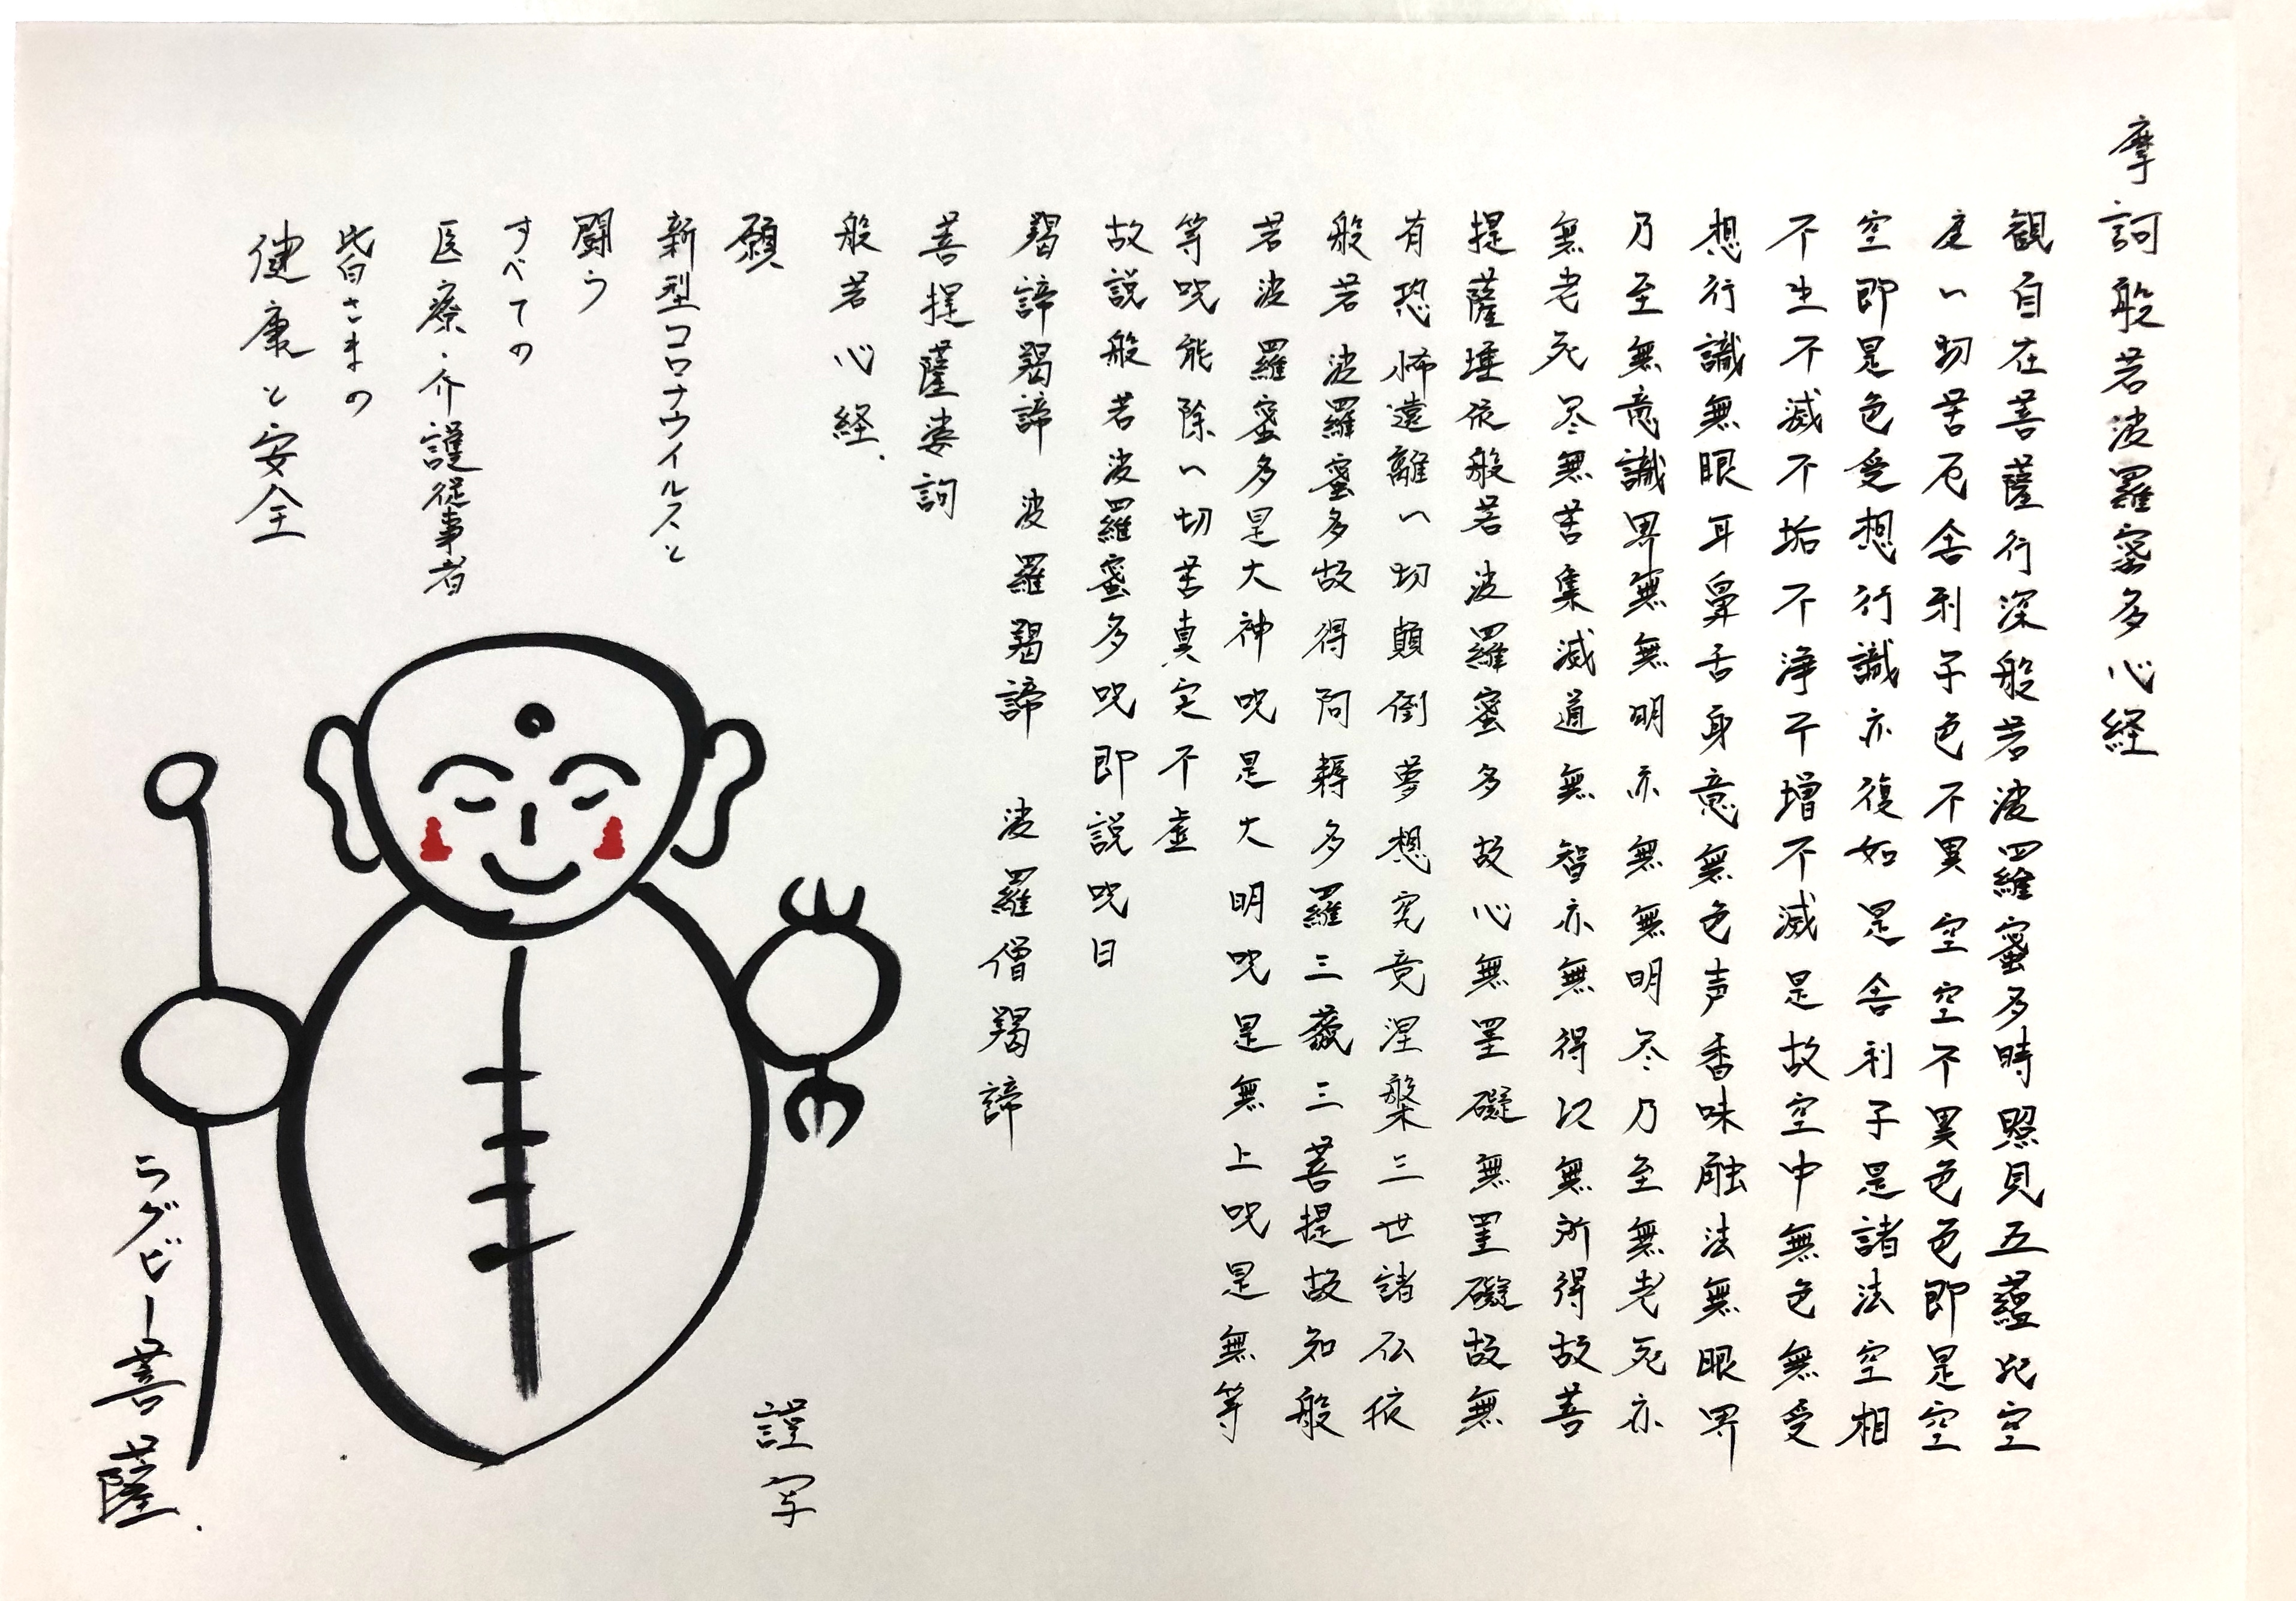 摩訶般若波羅蜜多心経
観自在菩薩行深般若波羅蜜多時照見五蘊皆空
度一切苦厄舎利子色不異空空不異色色即是空
空即是色受想行識亦復如是舎利子是諸法空相
不生不滅不垢不浄不増不減是故空中無色無受
想行識無眼耳鼻舌身意無色声香味触法無眼界
乃至無意識界無無明亦無無明尽乃至無老死亦
無老死尽無苦集滅道無智亦無得以無所得故菩
提薩埵依般若波羅蜜多故心無罣礙無罣礙故無
有恐怖遠離一切顛倒夢想究竟涅槃三世諸仏依
般若波羅蜜多故得阿耨多羅三藐三菩提故知般
若波羅蜜多是大神呪是大明呪是無上呪是無等
等呪能除一切苦真実不虚
故説般若波羅蜜多呪即説呪曰
羯諦羯諦 波羅羯諦 波羅僧羯諦
菩提薩婆訶
般若心経.
願
新型コロナウイルスと
闘う
すべての
医療・介護従事者
皆さまの
健康と安全
謹写
ラグビー菩薩.